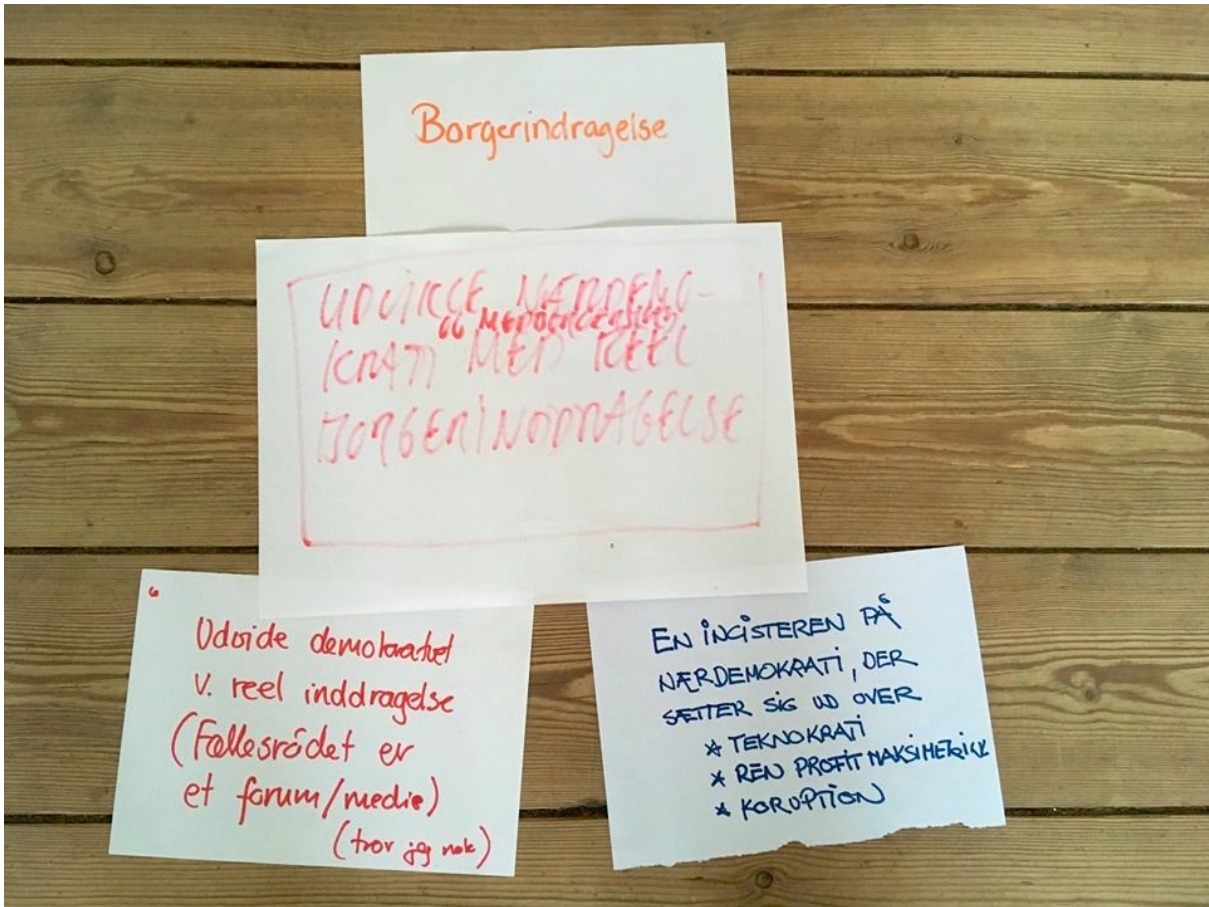 Borgerindragelse
UDVIKLE NÆRDEMO-
OG MEDBORGERSKAB
KRATI MED REEL
BORGERINDDRAGELSE
6
Udvide demokratiet
v. reel inddragelse
(Fællesrådet er
et forum/medie)
(tror jeg nok)
EN INCISTEREN PÅ
NÆRDEMOKRATI, DER
SÆTTER SIG UD OVER
* TEKNOKRATI
* REN PROFIT MAKSIMERING
* KORUPTION